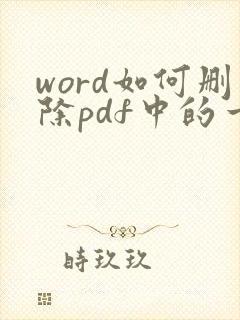 word如何删
除pdf中的一
時玖玖